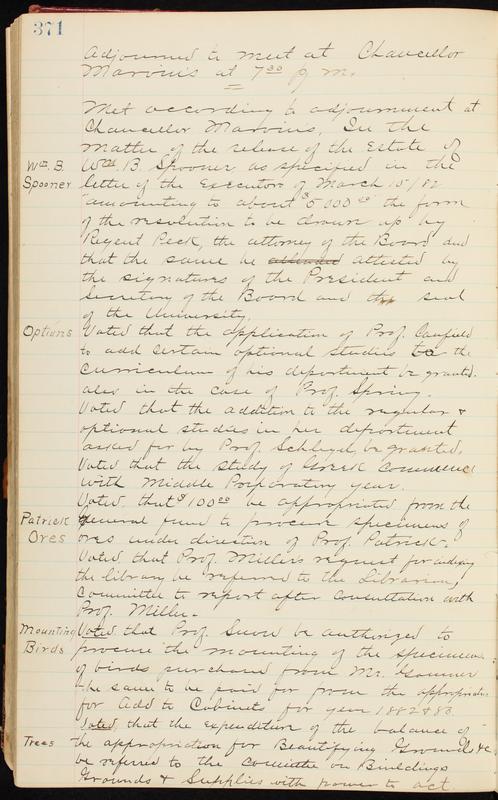 371
Adjourned to meet at Chancellor
Marvin's at 7 30 p m.
Met according to adjournment at
Chancellor Marvins, In the
matter of the release of the Estate of
Wm. B.
Spooner
Wm. B. Spooner as specified in the
letter of the Executors of March 15/82
amounting to about $5000 00 the form
of the resolution to be drawn up by
Regent Peck, the attorney of the Board and
that the same be attested by
the signatures of the President and
Secretary of the Board and the seal
of the University.
Options
Voted that the application of Prof. Canfield
to add certain optional studies to the
curriculum of his department be granted.
also in the case of Prof. Spring.
Voted that the addition to the regular &
optional studies in her department
asked for by Prof. Schlegel, be granted.
Voted that the study of Greek commence
with Middle Preparatory year.
Voted that $100 00 be appropriated from the
Patrick
Ores
general fund to procure specimens of
ores under direction of Prof. Patrick.
Voted that Prof. Miller's request for
the library be referred to the Librarian,
Committee to report after consultation with
Prof. Miller.
Mounting
Birds
Voted that Prof. Snow be authorized to
procure the mounting of the specimens
of birds purchased from Mr.
the same to be paid for from the appropriation
for Add to Cabinets for year 1882 & 83.
Voted, that the expenditure of the balance of
Trees
the appropriation for Beautifying Grounds &c.
be referred to the Committee on Buildings
Grounds & Supplies with power to act.